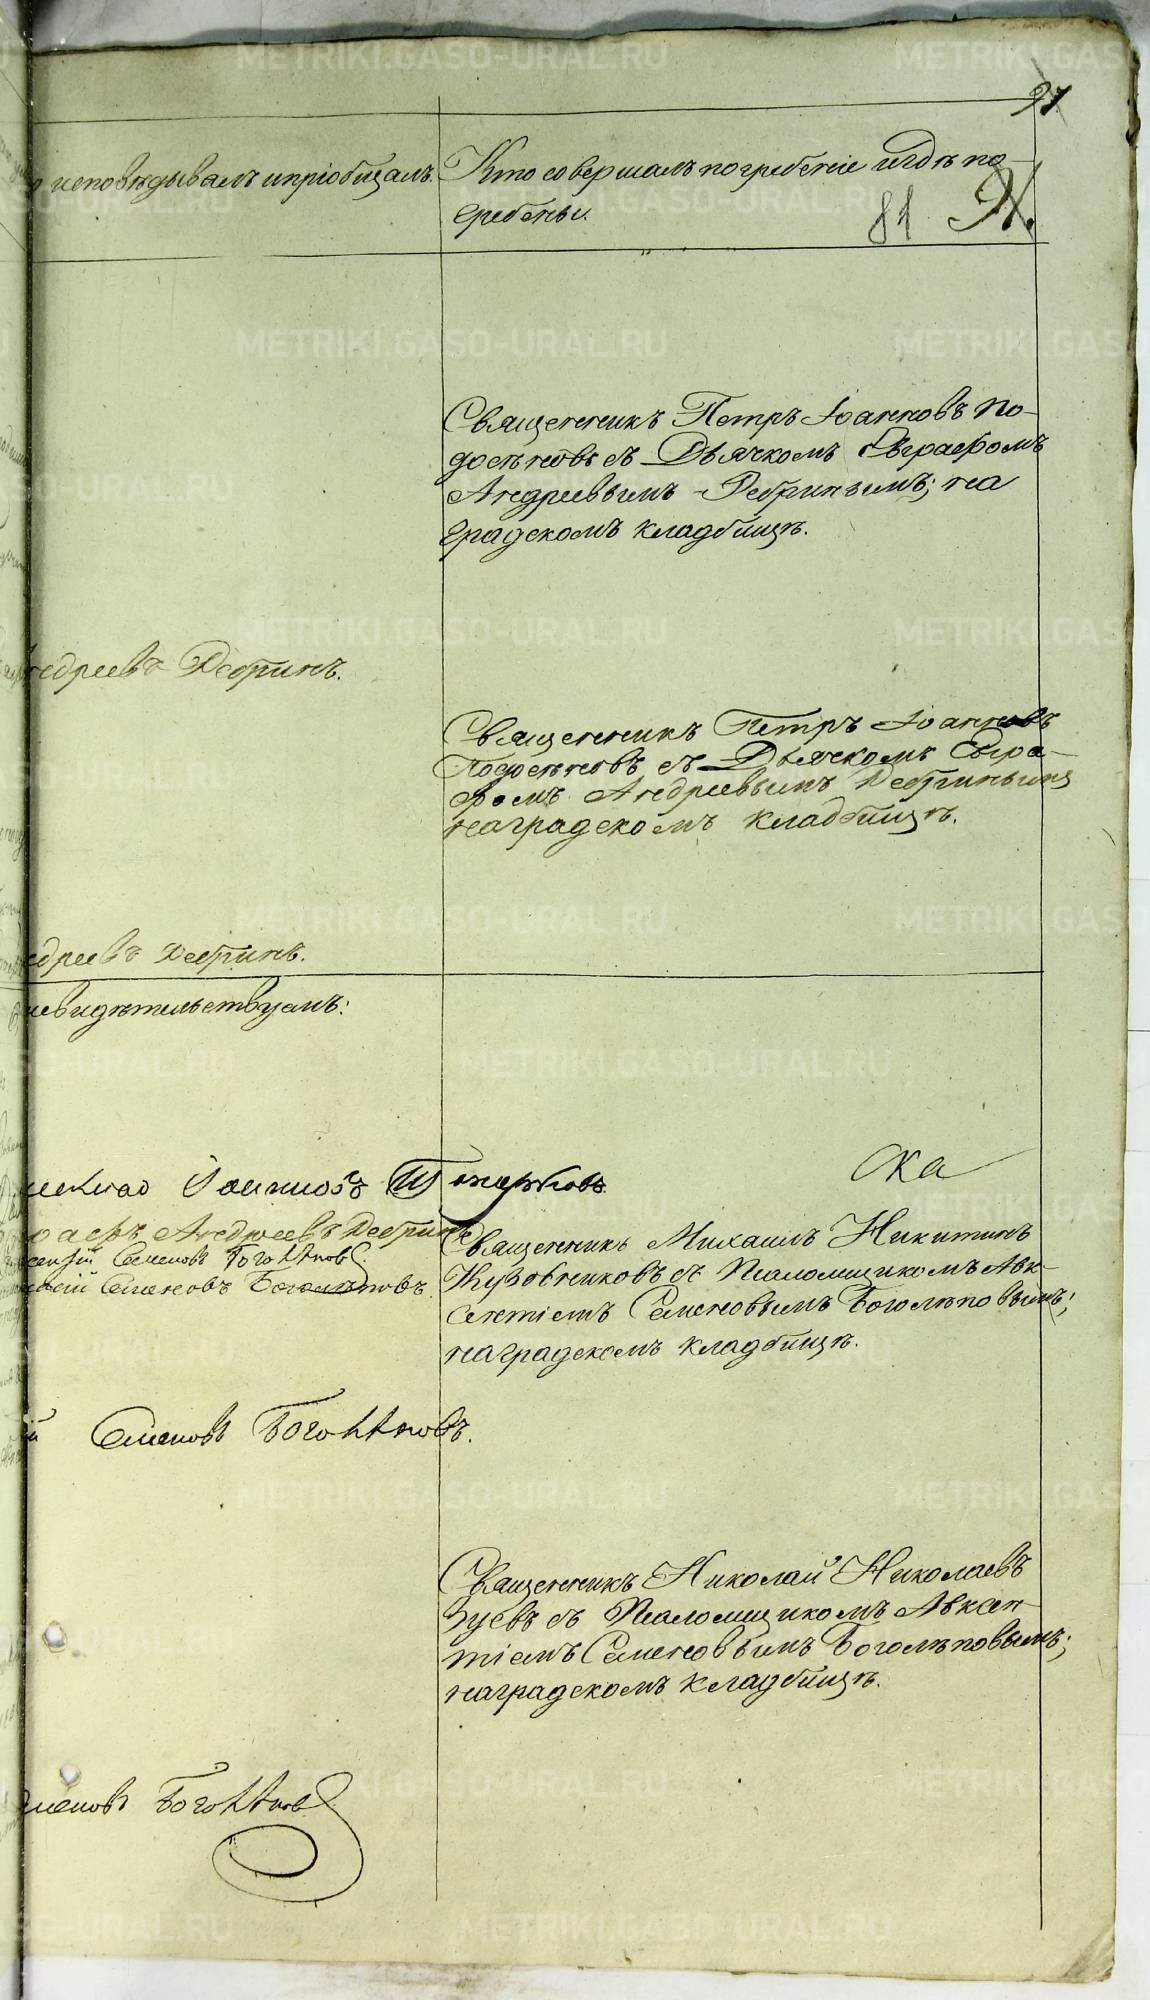 91
исповѣдывалъ и пріобщалъ.
Кто совершалъ погребеніе и гдѣ по-
гребены.
81
Священникъ Петръ Іоанновъ По-
досеновъ съ Дьячкомъ Евграфомъ
Андреевымъ Дебринымъ; на
градскомъ кладбищѣ.
ндреевъ Дебринъ.
Священникъ Петръ Іоанновъ
Подосеновъ съ Дьячкомъ Евгра-
фомъ Андреевымъ Дебринымъ
на градскомъ кладбищѣ.
дреевъ Дебринъ.
свидѣтельствуемъ:
Ока
Іоанновъ
Андреевъ Дебринъ
Семеновъ Боголѣповъ
Семеновъ Боголѣповъ.
Священникъ Михаилъ Никитинъ
Кузовниковъ съ Псаломщикомъ Авк-
сентіемъ Семеновымъ Боголѣповымъ;
на градскомъ кладбищѣ.
й Семеновъ Боголѣповъ.
Священникъ Николай Николаевъ
Зуевъ съ Псаломщикомъ Авксен-
тіемъ Семеновымъ Боголѣповымъ;
на градскомъ кладбищѣ.
меновъ Боголѣповъ
METRIKI.GASO-URAL.RU